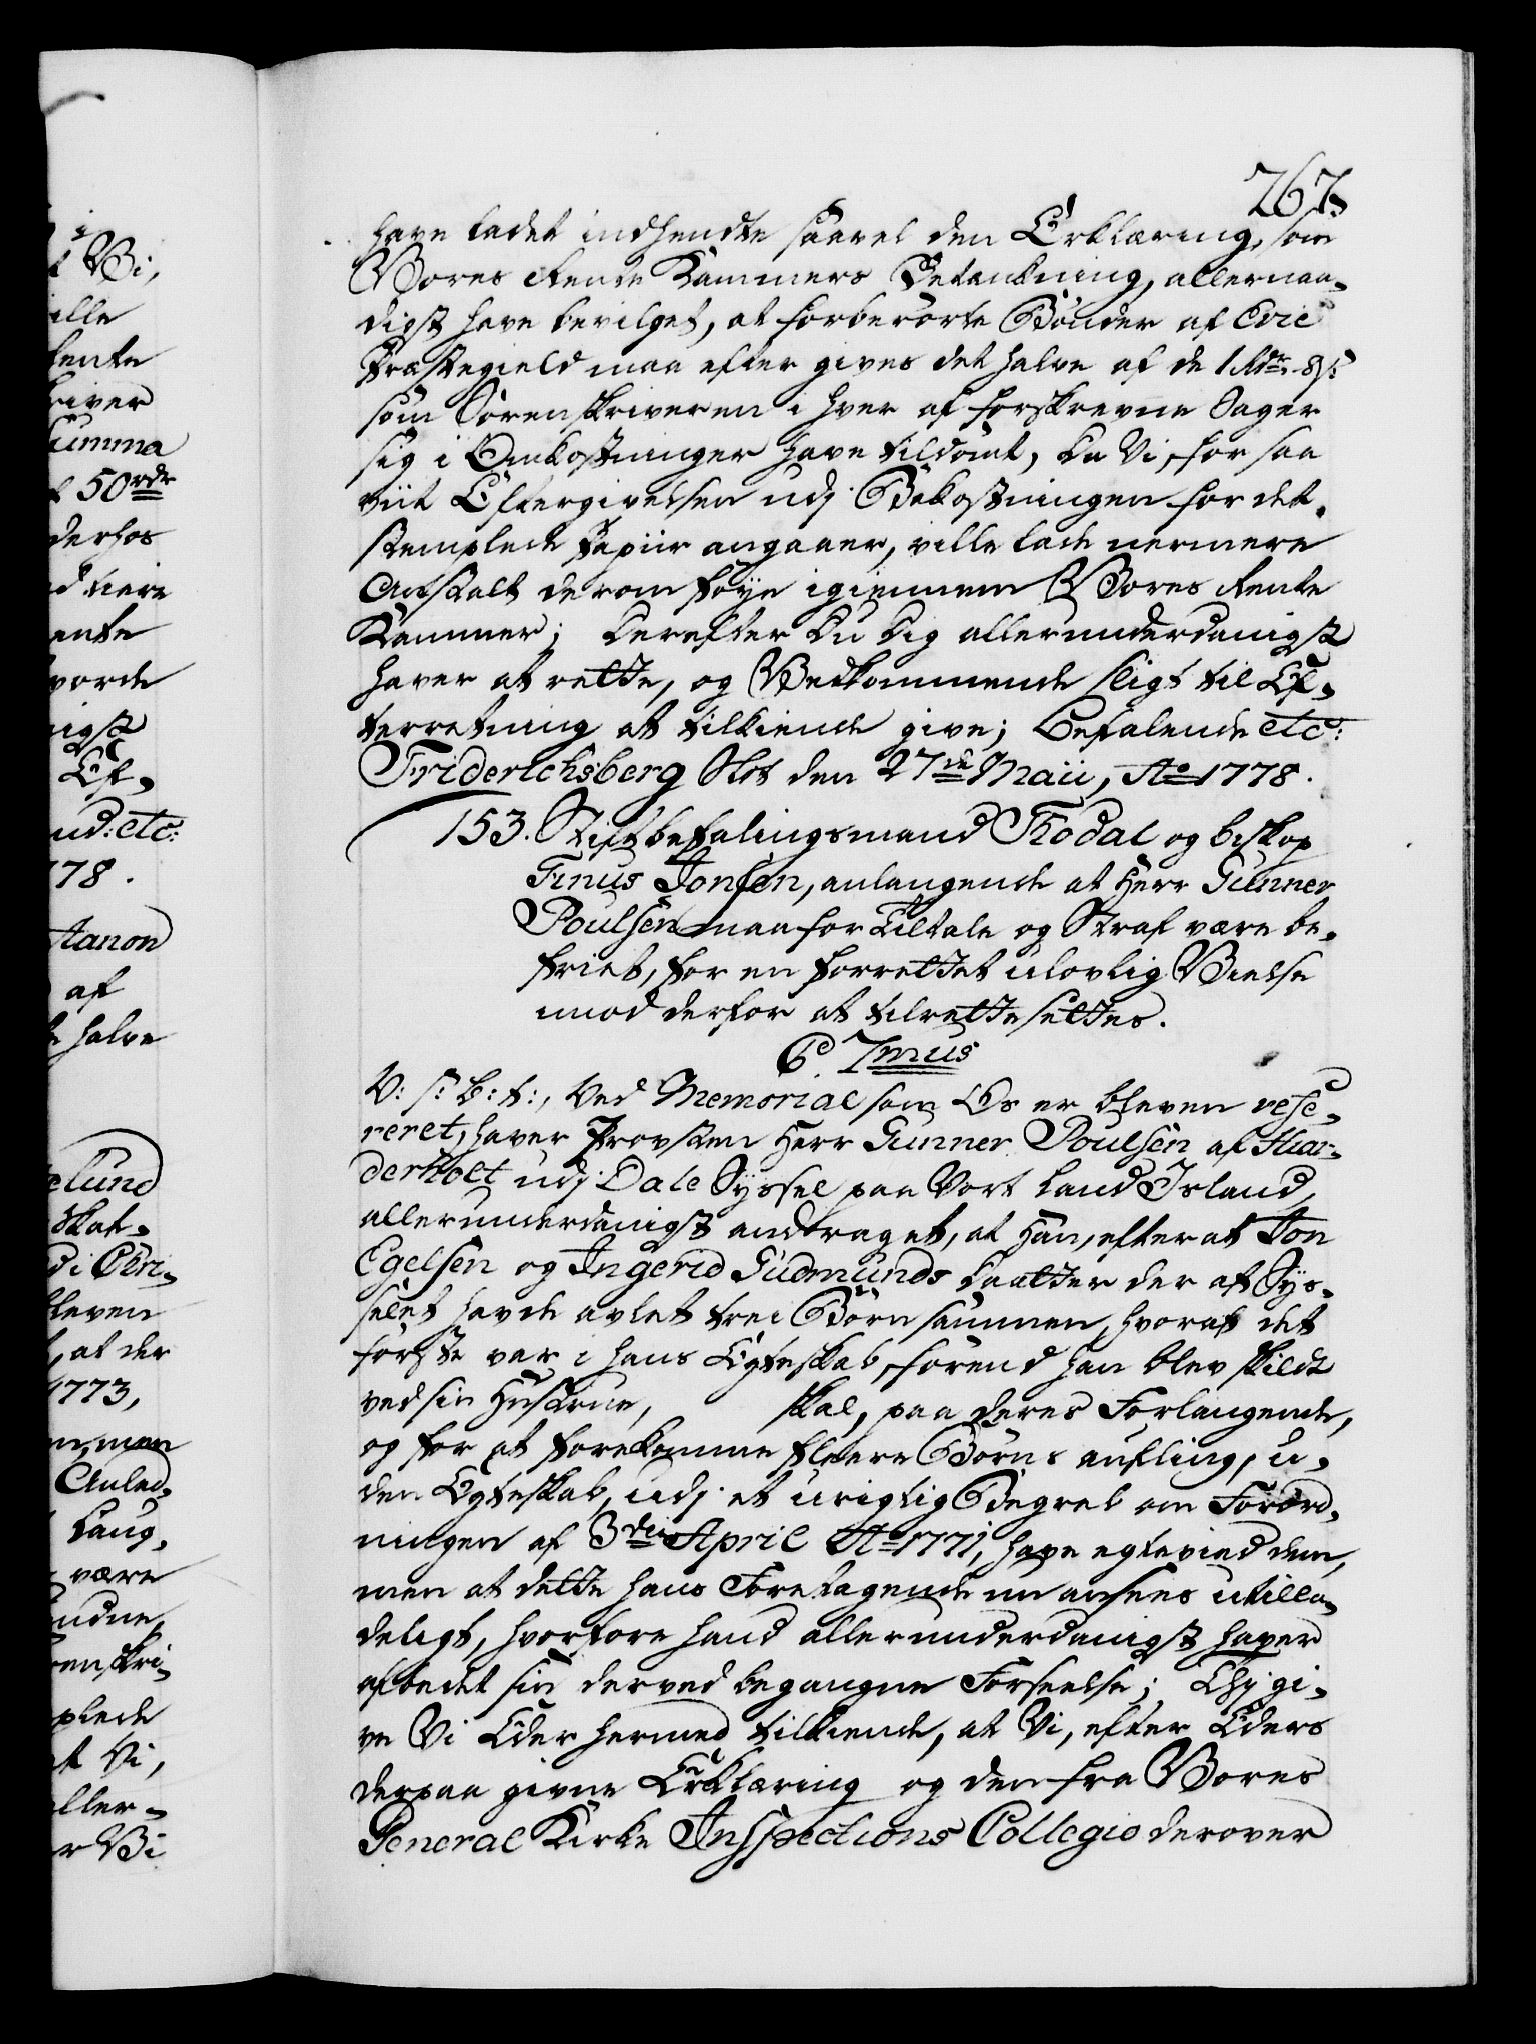 267.
have ladet indhendte saavel den Erklæring, som
Vores Rente Kammers Betænkning, allernaa-
digst have bevilget, at forberörte Bönder af Evie
Præstegield maa efter gives det halve af de 1 Rdr. 8 s:
som Sorenskriveren i hver af forskrevne Sager
sig i Omkostninger have tildömt, da Vi, for saa
viit Eftergivelsen udj Bekostningen for det
stemplede Papiir angaaer, ville lade nermere
Anstalt derom föye igiennem Vores Rente
Kammer; Derefter Du dig allerunderdanigst
haver at rette, og Vedkommende sligt til Ef-
terretning at tilkiende give; Befalende etc:
Friderichsberg Slot den 27de Maii, Ao 1778.
153. Stiftbefalingsmand Thodal og biskop
Finus Jonsen, anlangende at Herr Gunner
Poulsen maa for Tiltale og Straf være be-
friet, for en forrettet ulovlig Vielse
imod derfor at tilrettesettes.
C. 7mus
V: s: b: t:, Ved Memorial som Os er bleven refe-
reret, haver Provsten Herr Gunner Poulsen af Hiar-
derholt udj Dale Syssel paa Vort Land Island,
allerunderdanigst andraget, at Han, efterat Jon
Egelsen og Ingerid Gudmunds Daatter der af Sys-
selet havde avlet trei Börn sammen, hvoraf det
förste var i hans Egteskab, förend han blev skildt
ved sin Hustrue, skal, paa deres Forlangende,
og for at forekomme fleere Börns aufling, u-
den Egteskab, udj et urigtig Begreb om Forord-
ningen af 3die April Ao 1771, have egteviied dem,
men at dette hans Foretagende nu ansees utilla-
deligt, hvorfore hand allerunderdanigst haver
afbedet sin derved begangne Forseelse; Thj gi-
ve Vi Eder hermed tilkiende, at Vi, efter Eders
derpaa givne Erklæring og den fra Vores
General Kirke Inspections Collegio derover